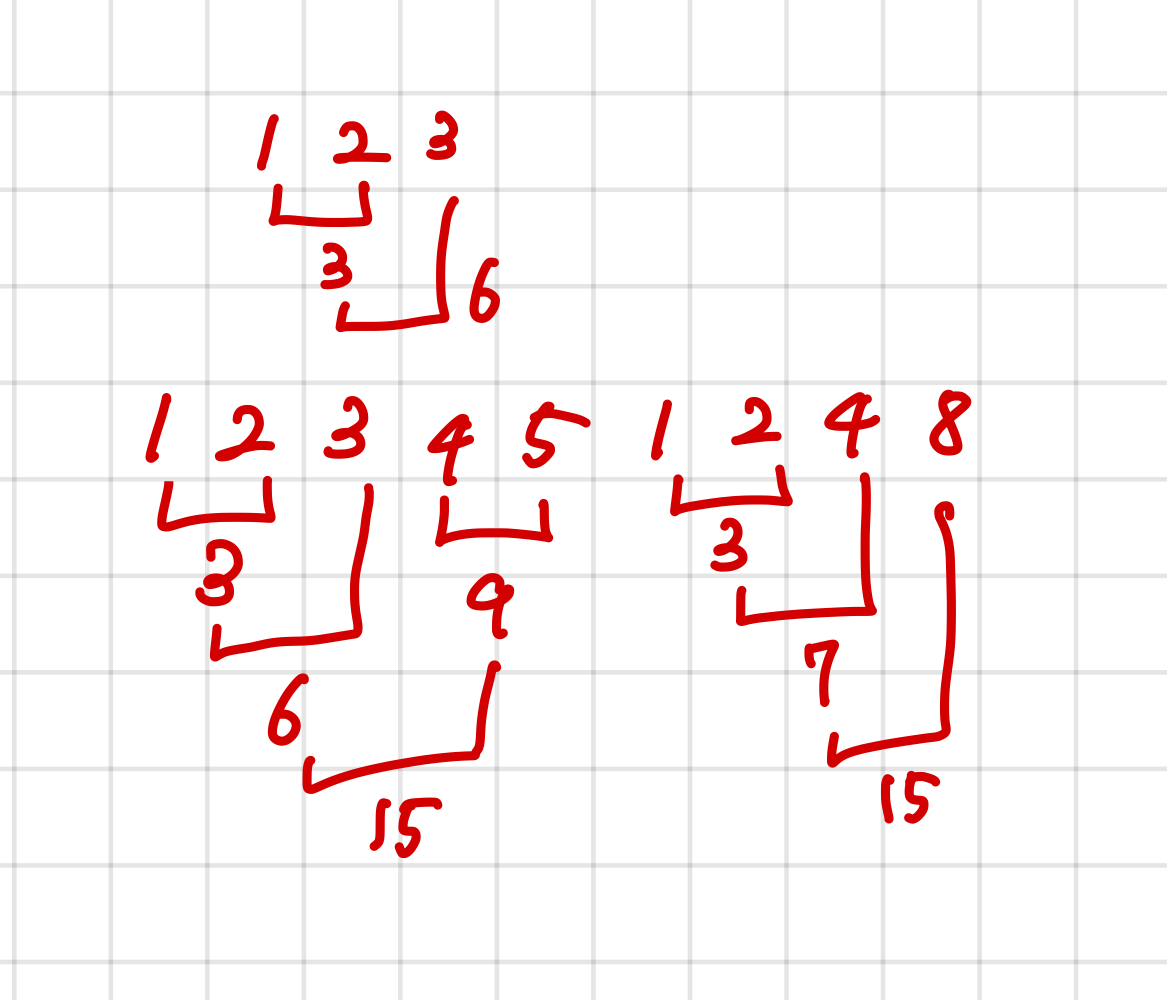 1 2 3
3
6
1 2 3 4 5
3 9
6
15
1 2 4 8
3
7
15